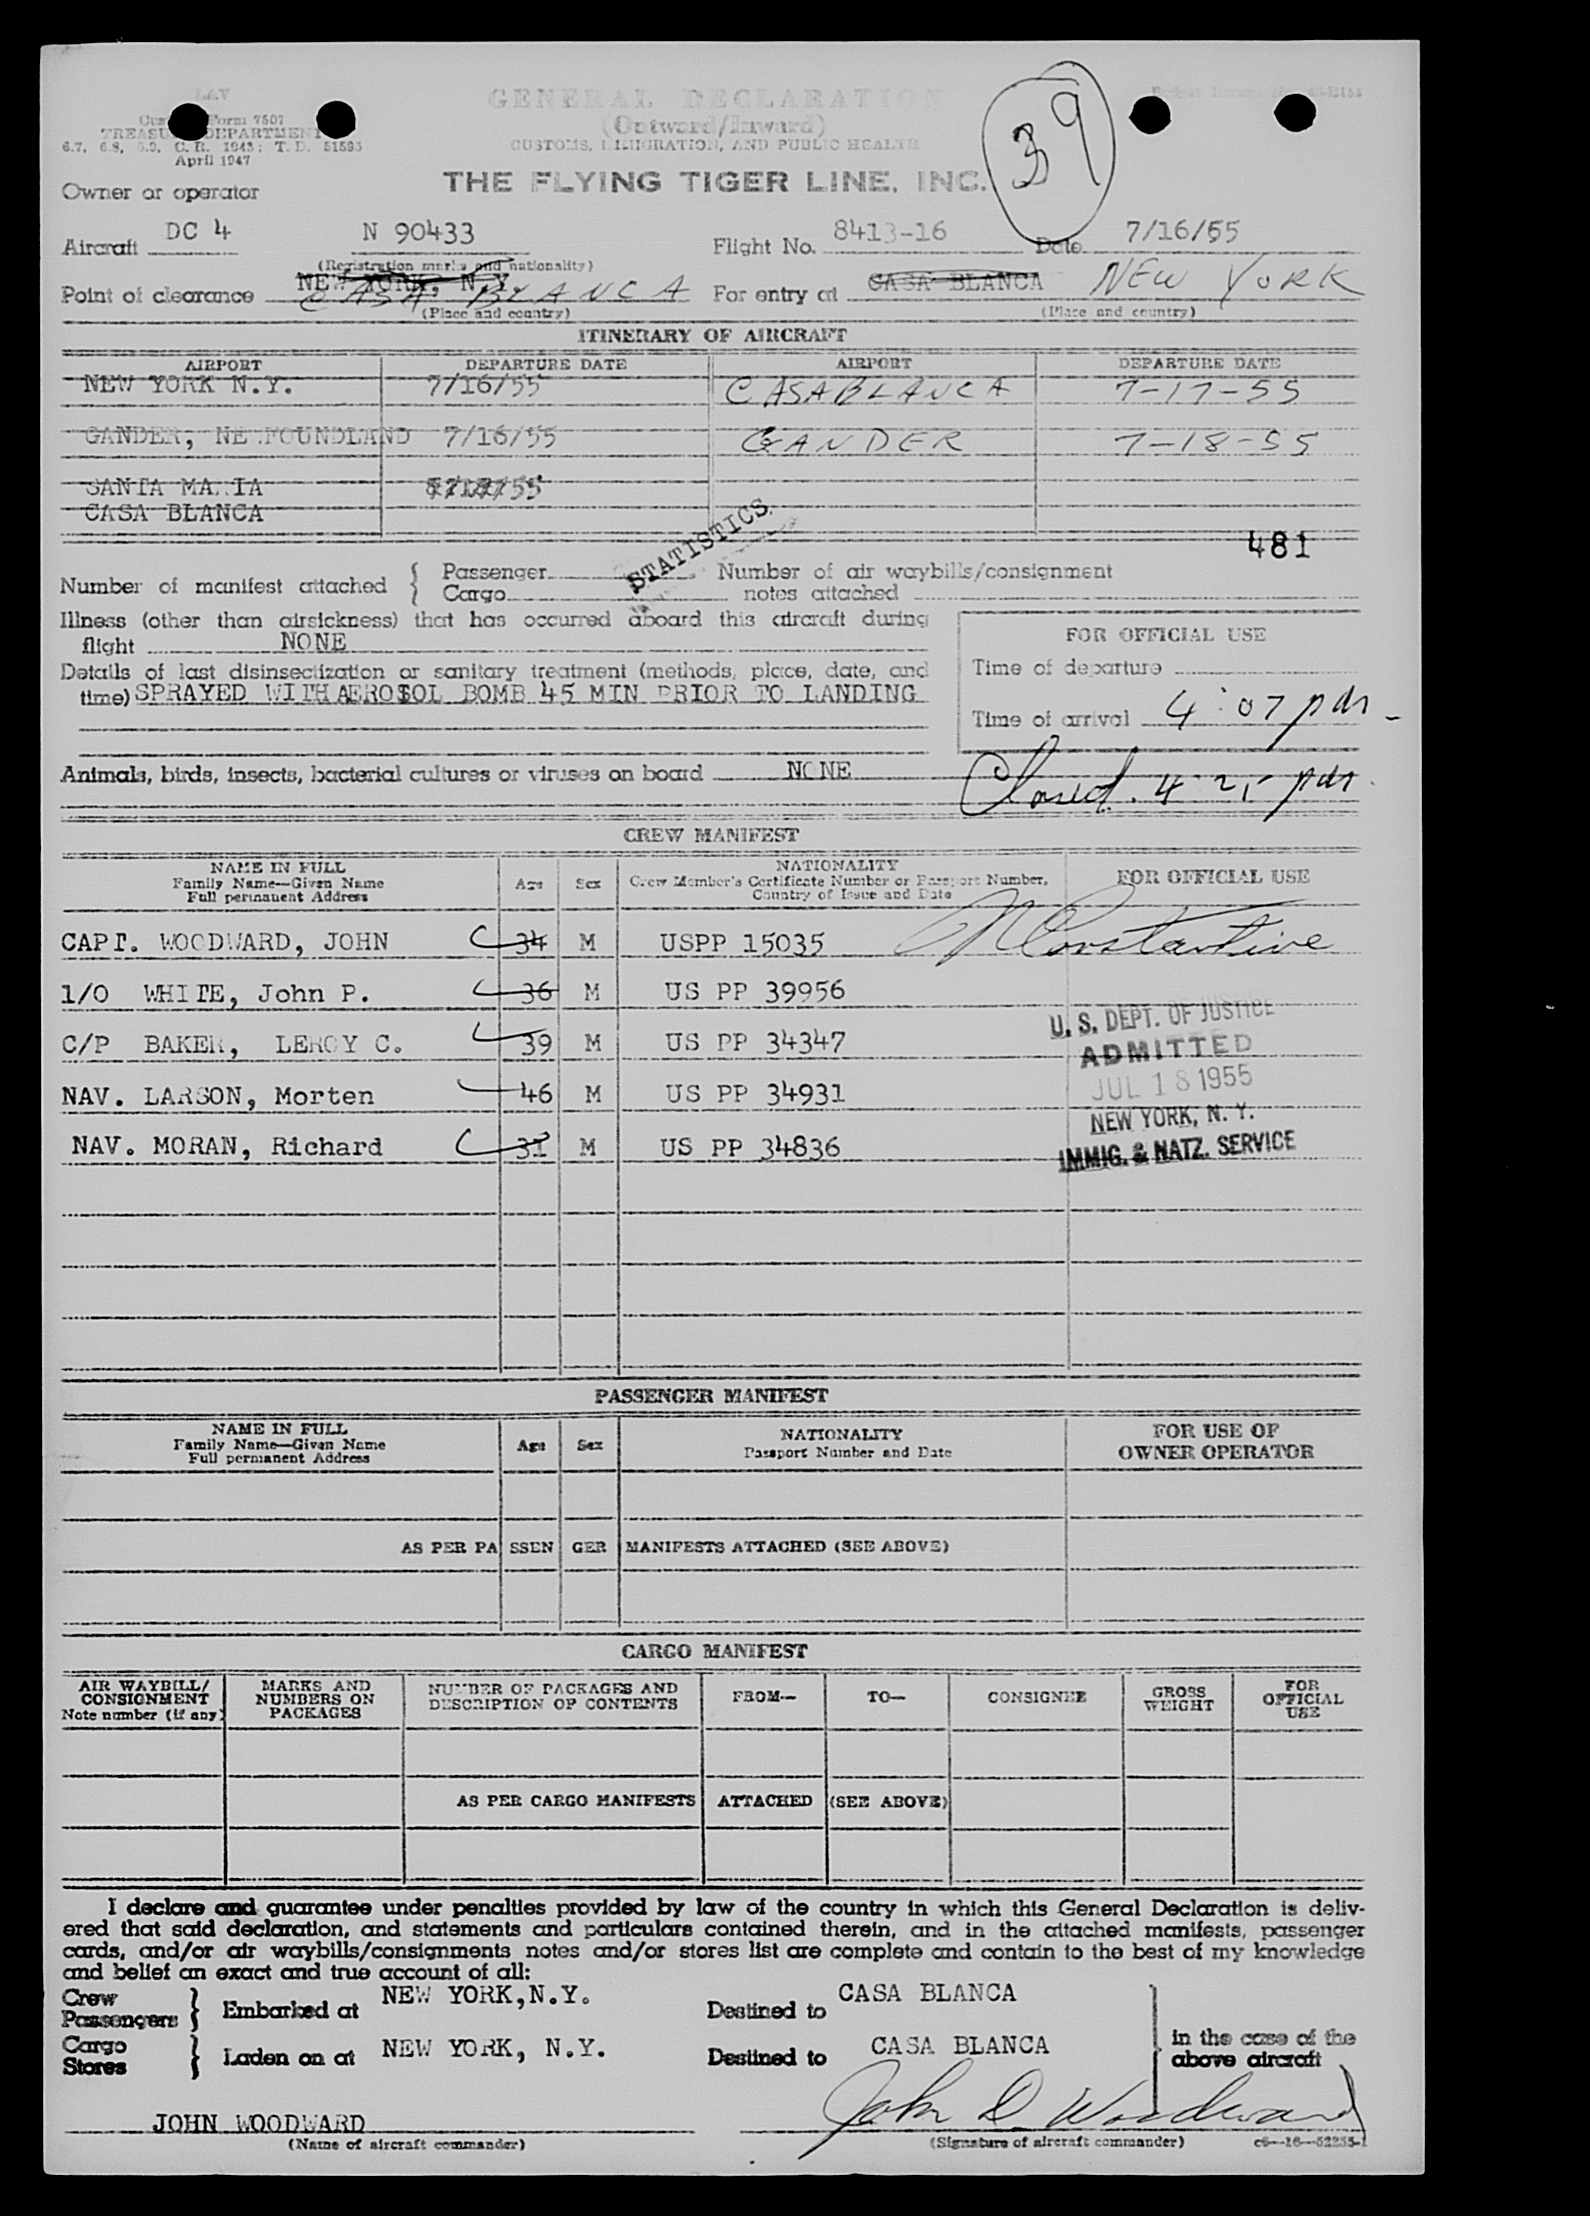 GENERAL DECLARATION
(Outward/Inward)
CUSTOMS, IMMIGRATION, AND PUBLIC HEALTH
Form 7507
TREASURY DEPARTMENT
6.7, 6.8, 6.9, C. R. 1943; T. D. 51595
April 1947
39
THE FLYING TIGER LINE, INC.
Owner or operator
Aircraft DC 4 N 90433 Flight No. 8413-16 Date 7/16/55
(Registration marks and nationality)
Point of clearance NEW YORK, N.Y. CASA BLANCA For entry at CASA BLANCA NEW YORK
(Place and country) (Place and country)
ITINERARY OF AIRCRAFT
AIRPORT DEPARTURE DATE AIRPORT DEPARTURE DATE
NEW YORK N.Y. 7/16/55 CASABLANCA 7-17-55
GANDER, NEWFOUNDLAND 7/16/55 GANDER 7-18-55
SANTA MARIA
CASA BLANCA
STATISTICS
481
Number of manifest attached { Passenger Number of air waybills/consignment
Cargo notes attached
Illness (other than airsickness) that has occurred aboard this aircraft during
flight NONE
FOR OFFICIAL USE
Details of last disinsectization or sanitary treatment (methods, place, date, and
time) SPRAYED WITH AEROSOL BOMB 45 MIN PRIOR TO LANDING
Time of departure
Time of arrival 4:07 pm
Animals, birds, insects, bacterial cultures or viruses on board NONE
Closed. 4 25 pm
CREW MANIFEST
NAME IN FULL
Family Name—Given Name
Full permanent Address
Age Sex
NATIONALITY
Crew Member's Certificate Number or Passport Number,
Country of Issue and Date
FOR OFFICIAL USE
CAPT. WOODWARD, JOHN 34 M USPP 15035 Constantine
1/O WHITE, John P. 36 M US PP 39956
C/P BAKER, LEROY C. 39 M US PP 34347
NAV. LARSON, Morten 46 M US PP 34931
NAV. MORAN, Richard 31 M US PP 34836
U. S. DEPT. OF JUSTICE
ADMITTED
JUL 18 1955
NEW YORK, N. Y.
IMMIG. & NATZ. SERVICE
PASSENGER MANIFEST
NAME IN FULL
Family Name—Given Name
Full permanent Address
Age Sex
NATIONALITY
Passport Number and Date
FOR USE OF
OWNER OPERATOR
AS PER PASSENGER MANIFESTS ATTACHED (SEE ABOVE)
CARGO MANIFEST
AIR WAYBILL/
CONSIGNMENT
Note number (if any)
MARKS AND
NUMBERS ON
PACKAGES
NUMBER OF PACKAGES AND
DESCRIPTION OF CONTENTS
FROM—
TO—
CONSIGNEE
GROSS
WEIGHT
FOR
OFFICIAL
USE
AS PER CARGO MANIFESTS ATTACHED (SEE ABOVE)
I declare and guarantee under penalties provided by law of the country in which this General Declaration is deliv-
ered that said declaration, and statements and particulars contained therein, and in the attached manifests, passenger
cards, and/or air waybills/consignments notes and/or stores list are complete and contain to the best of my knowledge
and belief an exact and true account of all:
Crew
Passengers } Embarked at NEW YORK,N.Y. Destined to CASA BLANCA
Cargo
Stores } Laden on at NEW YORK, N.Y. Destined to CASA BLANCA
in the case of the
above aircraft
JOHN WOODWARD John D Woodward
(Name of aircraft commander) (Signature of aircraft commander)